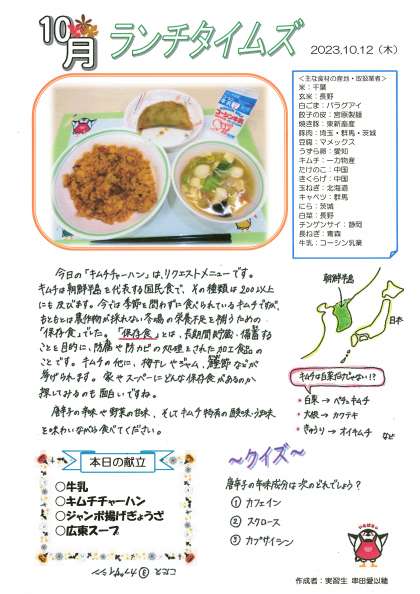 10月 ランチタイムズ
2023.10.12（木）
＜主な食材の産地・取扱業者＞
米：千葉
玄米：長野
白ごま：パラグアイ
餃子の皮：宮原製麺
焼き豚：東新畜産
豚肉：埼玉・群馬・茨城
豆腐：マメックス
うずら卵：愛知
キムチ：一力物産
たけのこ：中国
きくらげ：中国
玉ねぎ：北海道
キャベツ：群馬
にら：茨城
白菜：長野
チンゲンサイ：静岡
長ねぎ：青森
牛乳：コーシン乳業
今日の「キムチチャーハン」は、リクエストメニューです。
キムチは朝鮮半島を代表する国民食で、その種類は200以上
にも及びます。今では季節を問わずに食べられているキムチですが、
もともとは農作物が採れない冬場の栄養不足を補うための
「保存食」でした。「保存食」とは、長期間貯蔵・備蓄する
ことを目的に、防腐や防カビの処理をされた加工食品の
ことです。キムチの他に、梅干しやジャム、鰹節などが
挙げられます。家やスーパーにどんな保存食があるのか
探してみるのも面白いですね。
唐辛子の辛味や野菜の甘味、そしてキムチ特有の酸味・旨味
を味わいながら食べてください。
朝鮮半島
日本
キムチは白菜だけじゃない！？
・白菜 → ペチュキムチ
・大根 → カクテキ
・きゅうり → オイキムチ
など
本日の献立
○牛乳
○キムチチャーハン
○ジャンボ揚げぎょうざ
○広東スープ
～クイズ～
唐辛子の辛味成分は次のどれでしょう？
① カフェイン
② スクロース
③ カプサイシン
こたえ ③ カプサイシン
作成者：実習生 串田愛以穂